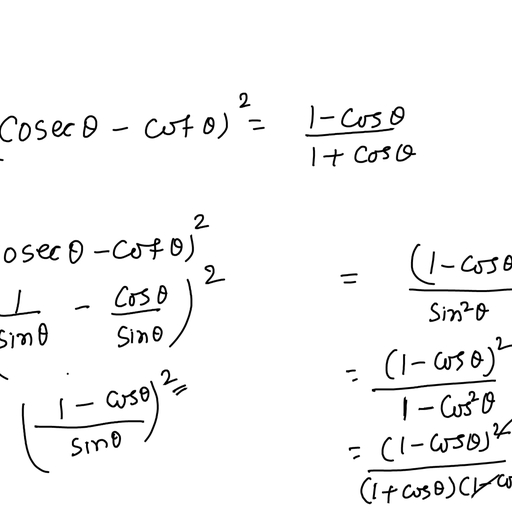 Cosec θ - cot θ)² = (1 - cos θ)/(1 + cos θ)
osec θ - cot θ)²
1/sin θ - cos θ/sin θ)²
((1 - cos θ)/sin θ)² =
= (1 - cos θ/sin²θ
= (1 - cos θ)²/(1 - cos²θ
= (1 - cos θ)²/(1 + cos θ)(1 - co